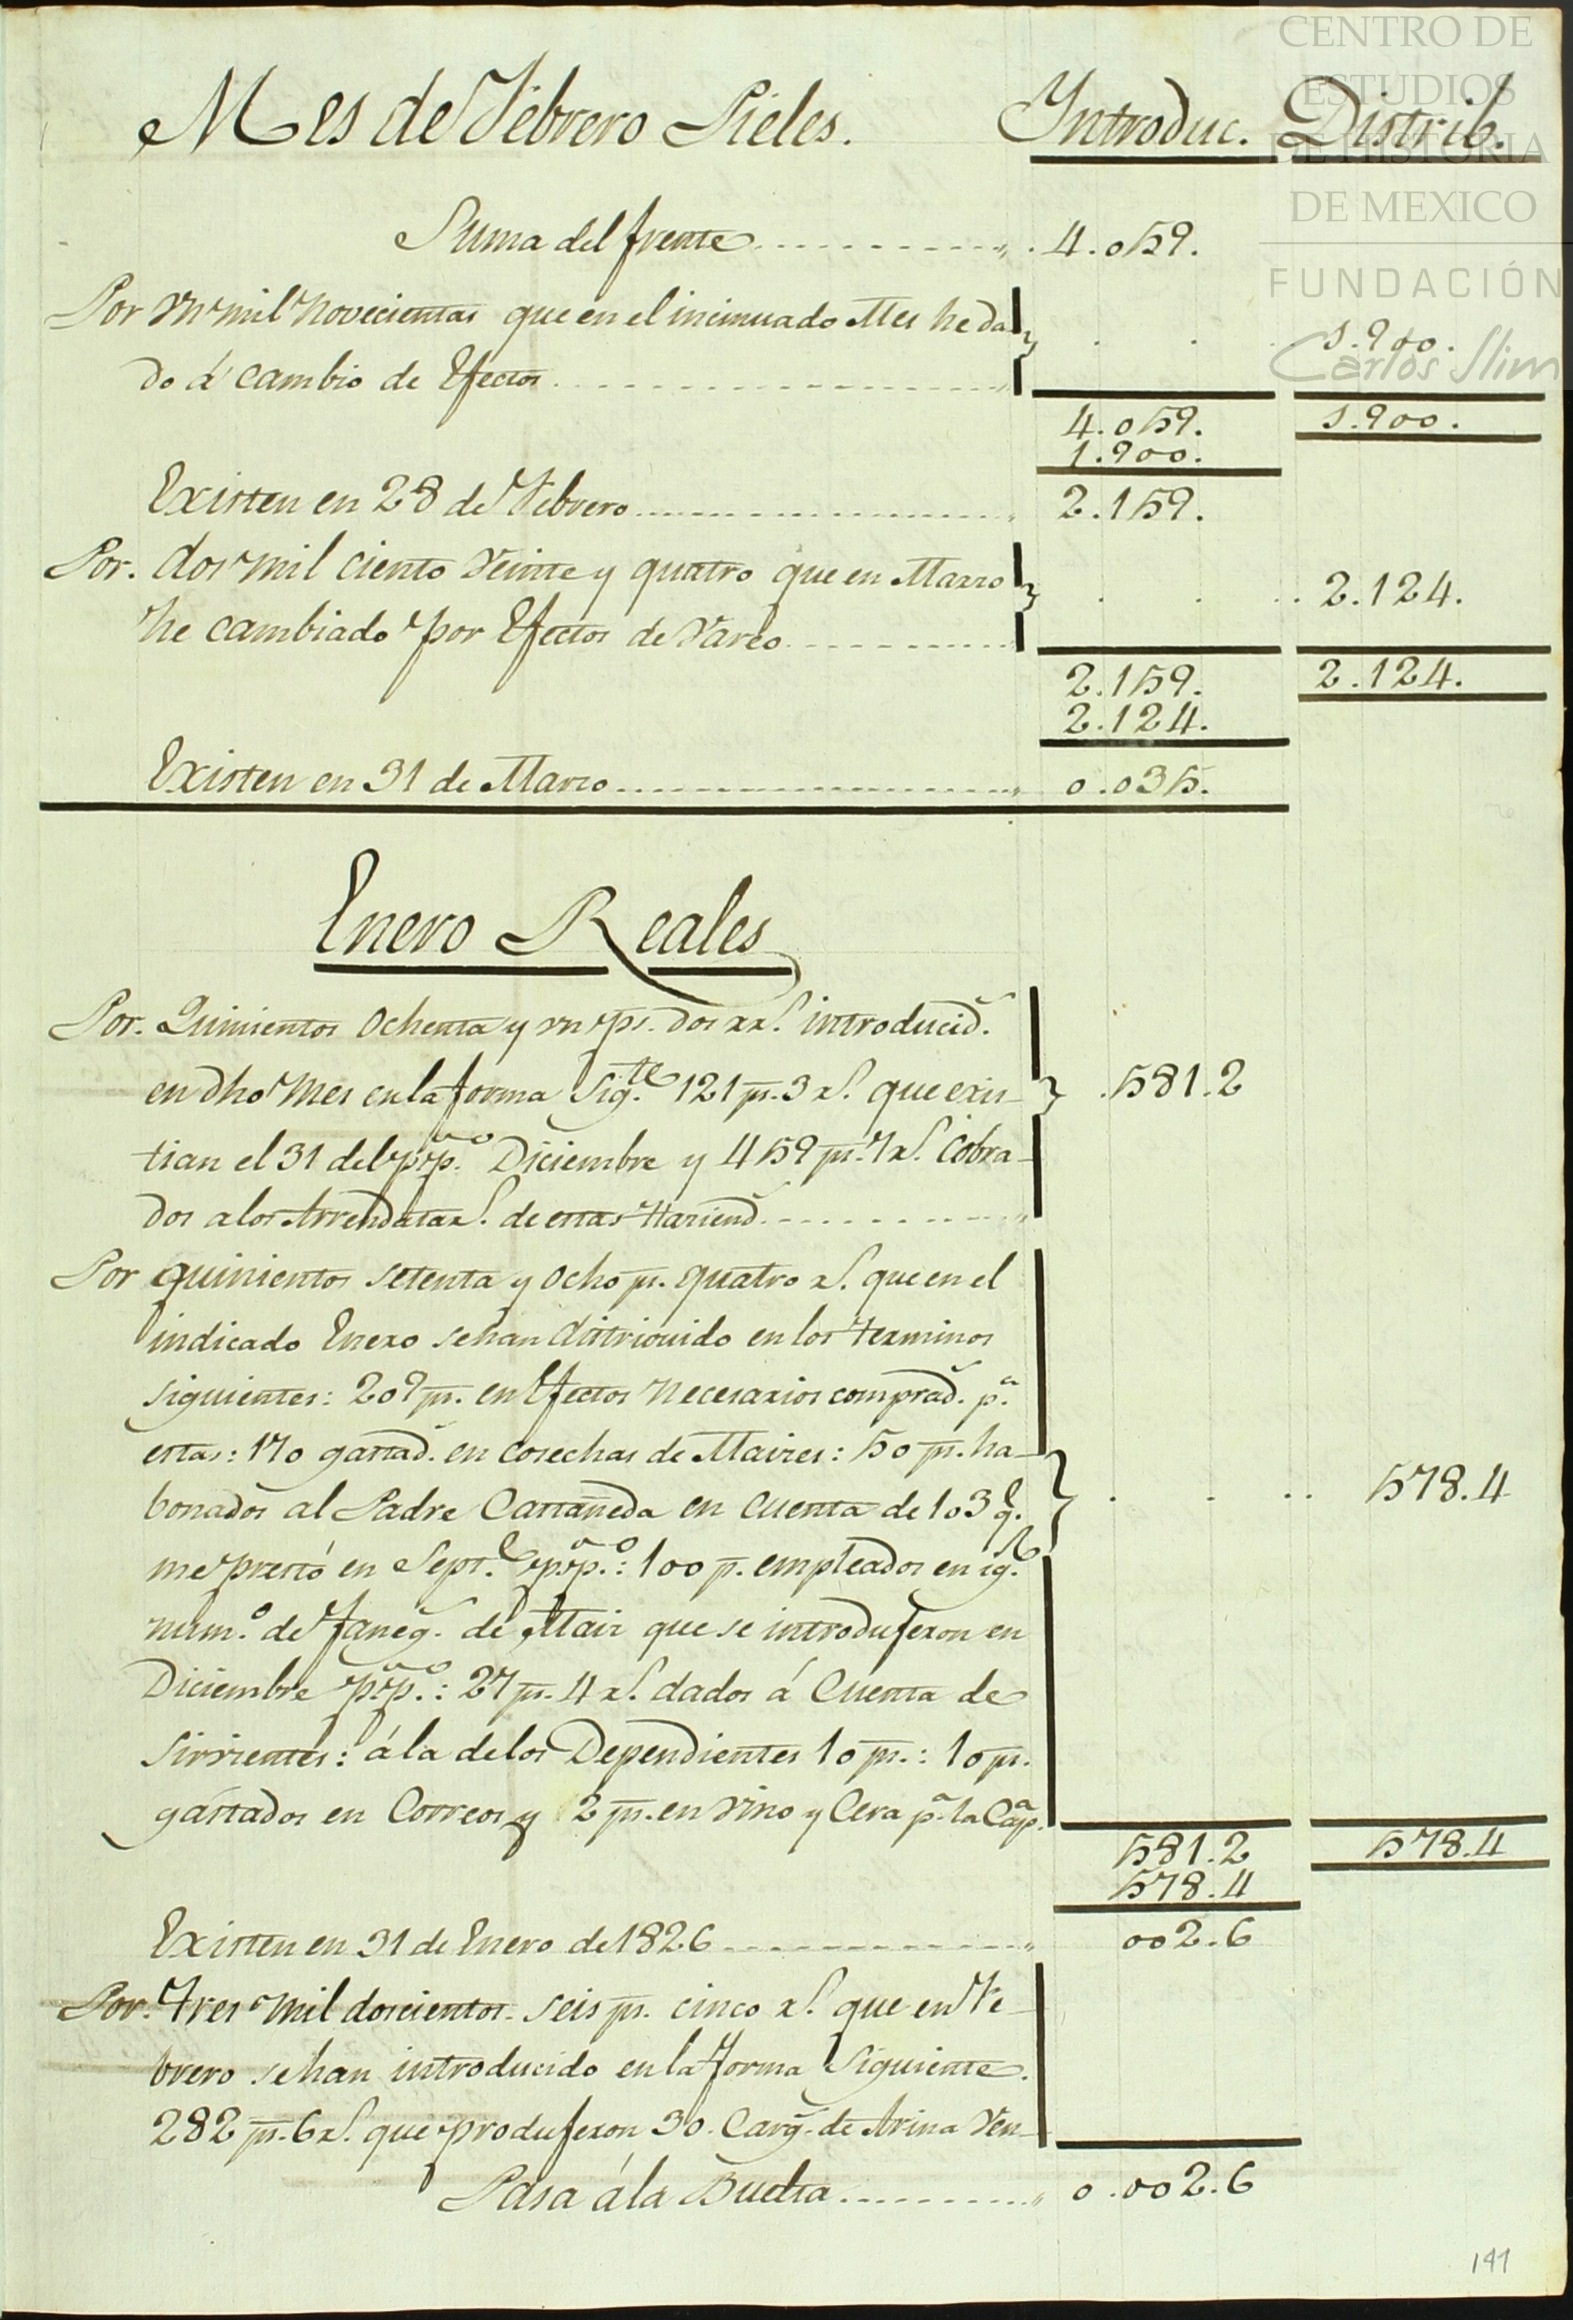 CENTRO DE
ESTUDIOS
DE HISTORIA
DE MEXICO
FUNDACIÓN
Carlos Slim
Mes de Febrero Pieles. Introduc. Distrib.
Suma del frente 4.059.
Por vn mil novecientas que en el incinuado Mes he da 1.900.
do á cambio de Efectos
4.059. 1.900.
1.900.
Existen en 28 de Febrero 2.159.
Por. dos mil ciento veinte y quatro que en Marzo 2.124.
he cambiado por Efectos de Vareo
2.159. 2.124.
2.124.
Existen en 31 de Marzo 0.035.
Enero Reales
Por. Quinientos ochenta y vn ps. dos rs. introducid.
en dho Mes en la forma Sigte. 121 ps. 3 rs. que exis- .581.2
tian el 31 del pp.o Diciembre y 459 ps. 7 rs. cobra-
dos a los Arrendatars. de estas Haciend.
Por quinientos setenta y ocho ps. quatro rs. que en el
indicado Enero se han distribuido en los terminos
siguientes: 209 ps. en Efectos necesarios comprad. pa.
estas: 170 gastad. en cosechas de Maizes: 50 ps. ha-
bonados al Padre Castañeda en cuenta de 103 q. 578.4
me prestó en Septe. pp.o: 100 p. empleados en ig.l
num.o de faneg. de Maiz que se introdujeron en
Diciembre pp.o: 27 ps. 4 rs. dados á Cuenta de
Sirvientes: á la de los Dependientes 10 ps.: 10 ps.
gastados en Correos y 2 ps. en vino y Cera pa. la Capa.
581.2 578.4
578.4
Existen en 31 de Enero de 1826 002.6
Por. Tres mil doscientos seis ps. cinco rs. que en Fe-
brero se han introducido en la forma Siguiente.
282 ps. 6 rs. que produjeron 30. Carg. de Arina Ven-
Pasa á la Buelta 0.002.6
141